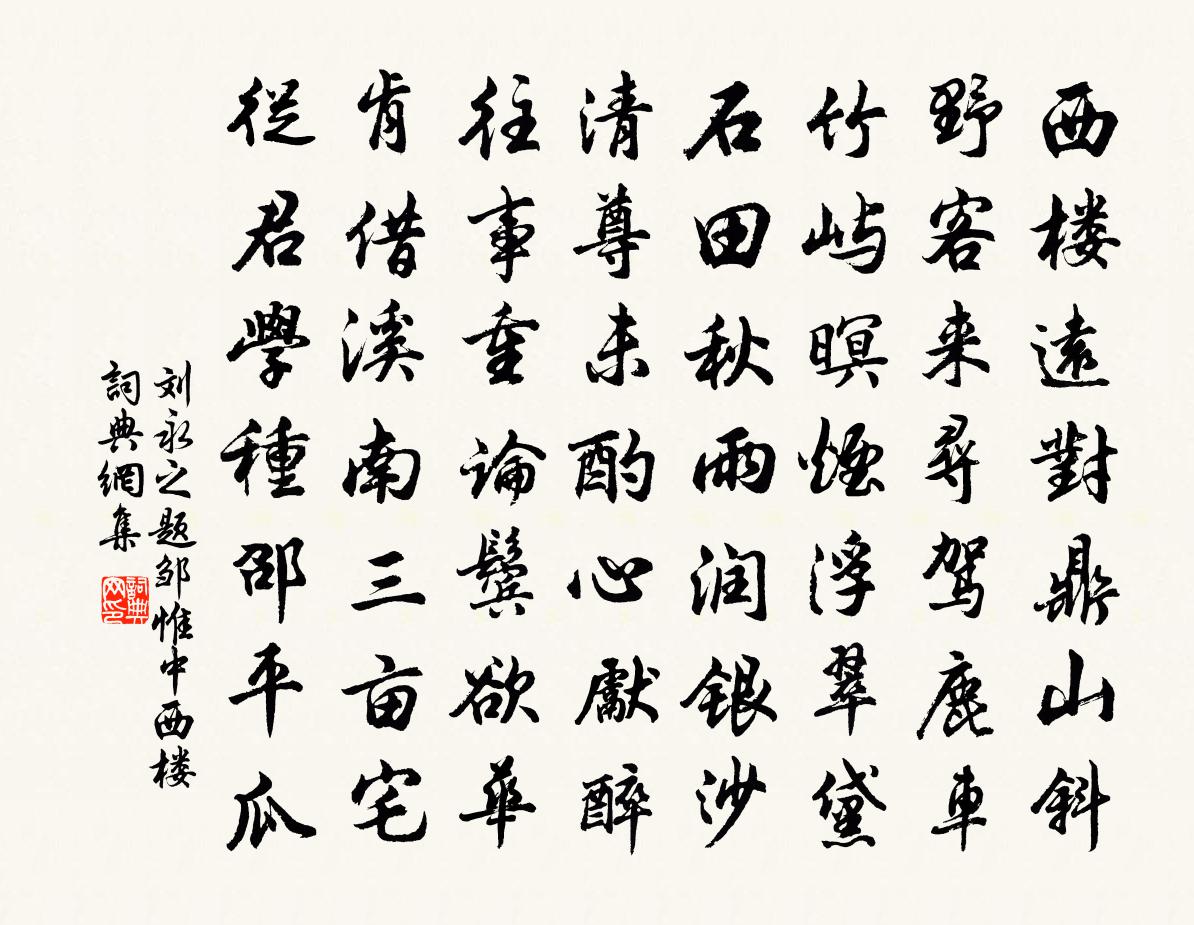 西楼遠對鼎山斜
野客来尋駕鹿車
竹屿暝煙浮翠黛
石田秋雨润銀沙
清尊未酌心獻醉
往事重論鬓欲華
肯借溪南三亩宅
從君學種邵平瓜
刘永之题邹惟中西楼
詞典網集
詞典网印